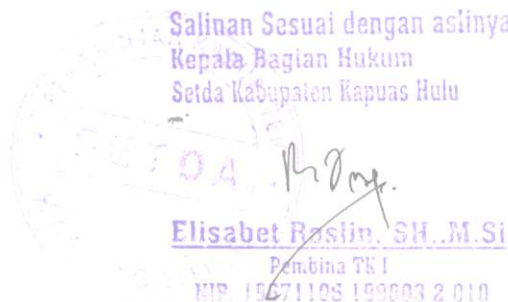 Salinan Sesuai dengan aslinya
Kepala Bagian Hukum
Setda Kabupaten Kapuas Hulu
SETDA
Elisabet Roslin, SH.,M.Si
Pembina TK I
NIP. 19671106 199803 2 010